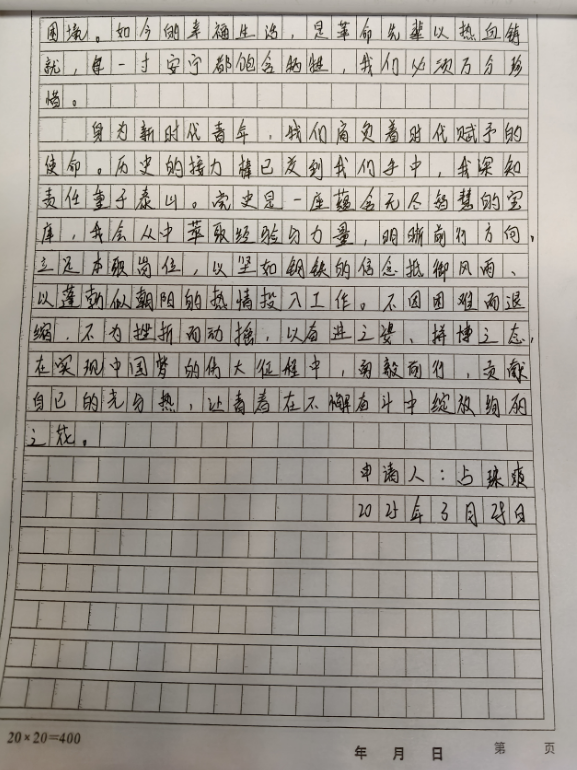 困境。如今的幸福生活，是革命先辈以热血铸
就，每一寸安宁都饱含牺牲，我们必须万分珍
惜。
身为新时代青年，我们肩负着时代赋予的
使命。历史的接力棒已交到我们手中，我深知
责任重于泰山。党史是一座蕴含无尽智慧的宝
库，我会从中萃取经验与力量，明晰前行方向，
立足本职岗位，以坚如钢铁的信念抵御风雨、
以蓬勃似朝阳的热情投入工作。不因困难而退
缩，不为挫折而动摇，以奋进之姿、拼博之态，
在实现中国梦的伟大征程中，勇毅前行，贡献
自己的光与热，让青春在不懈奋斗中绽放绚丽
之花。
申请人：占
2025年3月25日
20×20=400
年 月 日
第 页